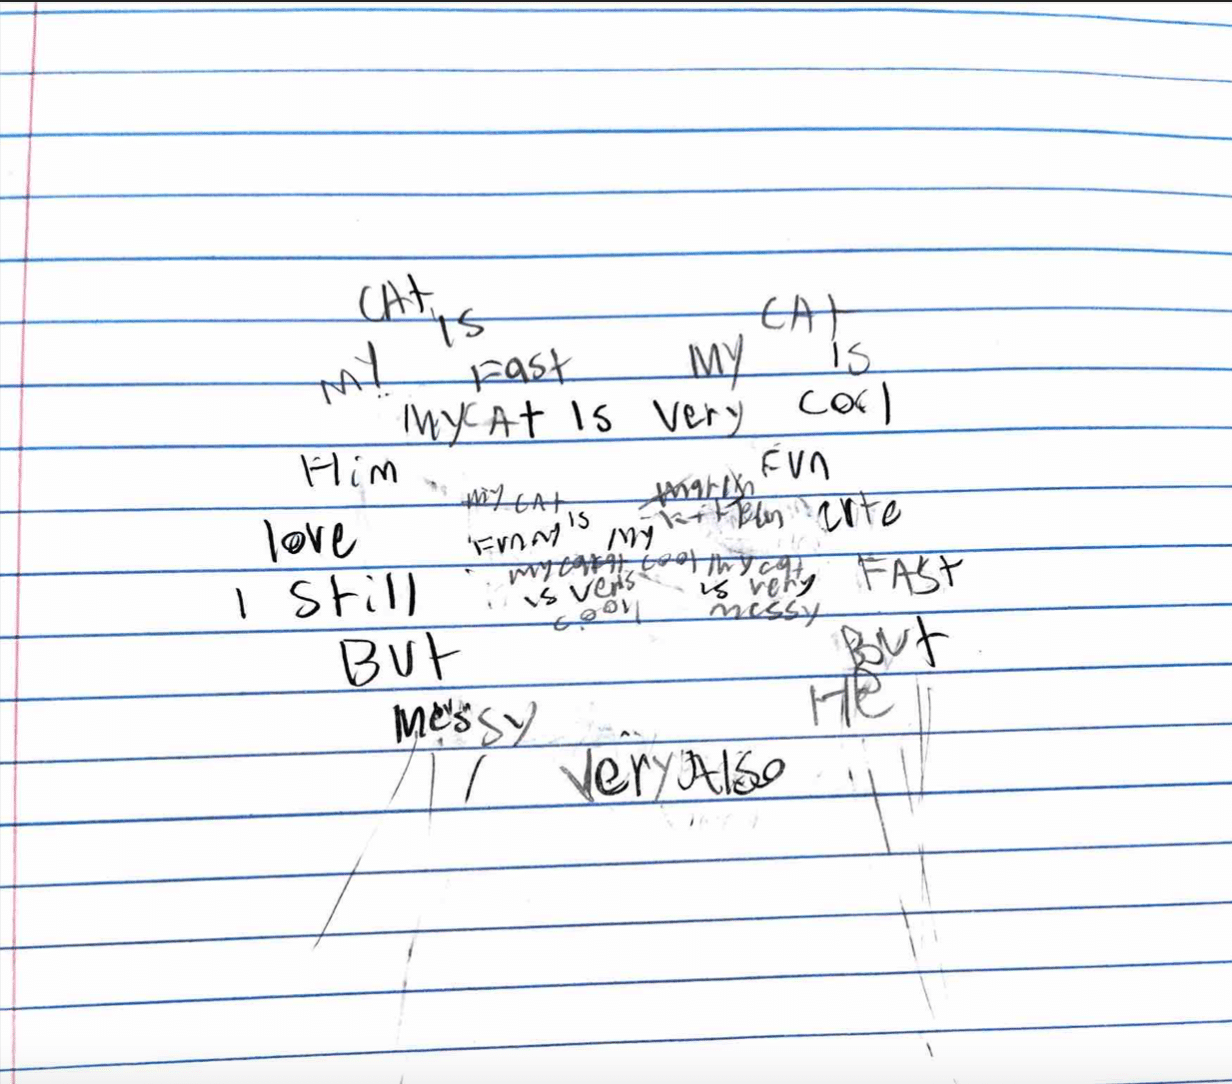 CAt is
MY Fast
CAt
MY is
MYCAt is very cool
Him
Fun
love
cute
I Still
FASt
BUt
BUt
Messy
He
Very Also
my CAt
is
Funny my
cool my cat
is very
messy